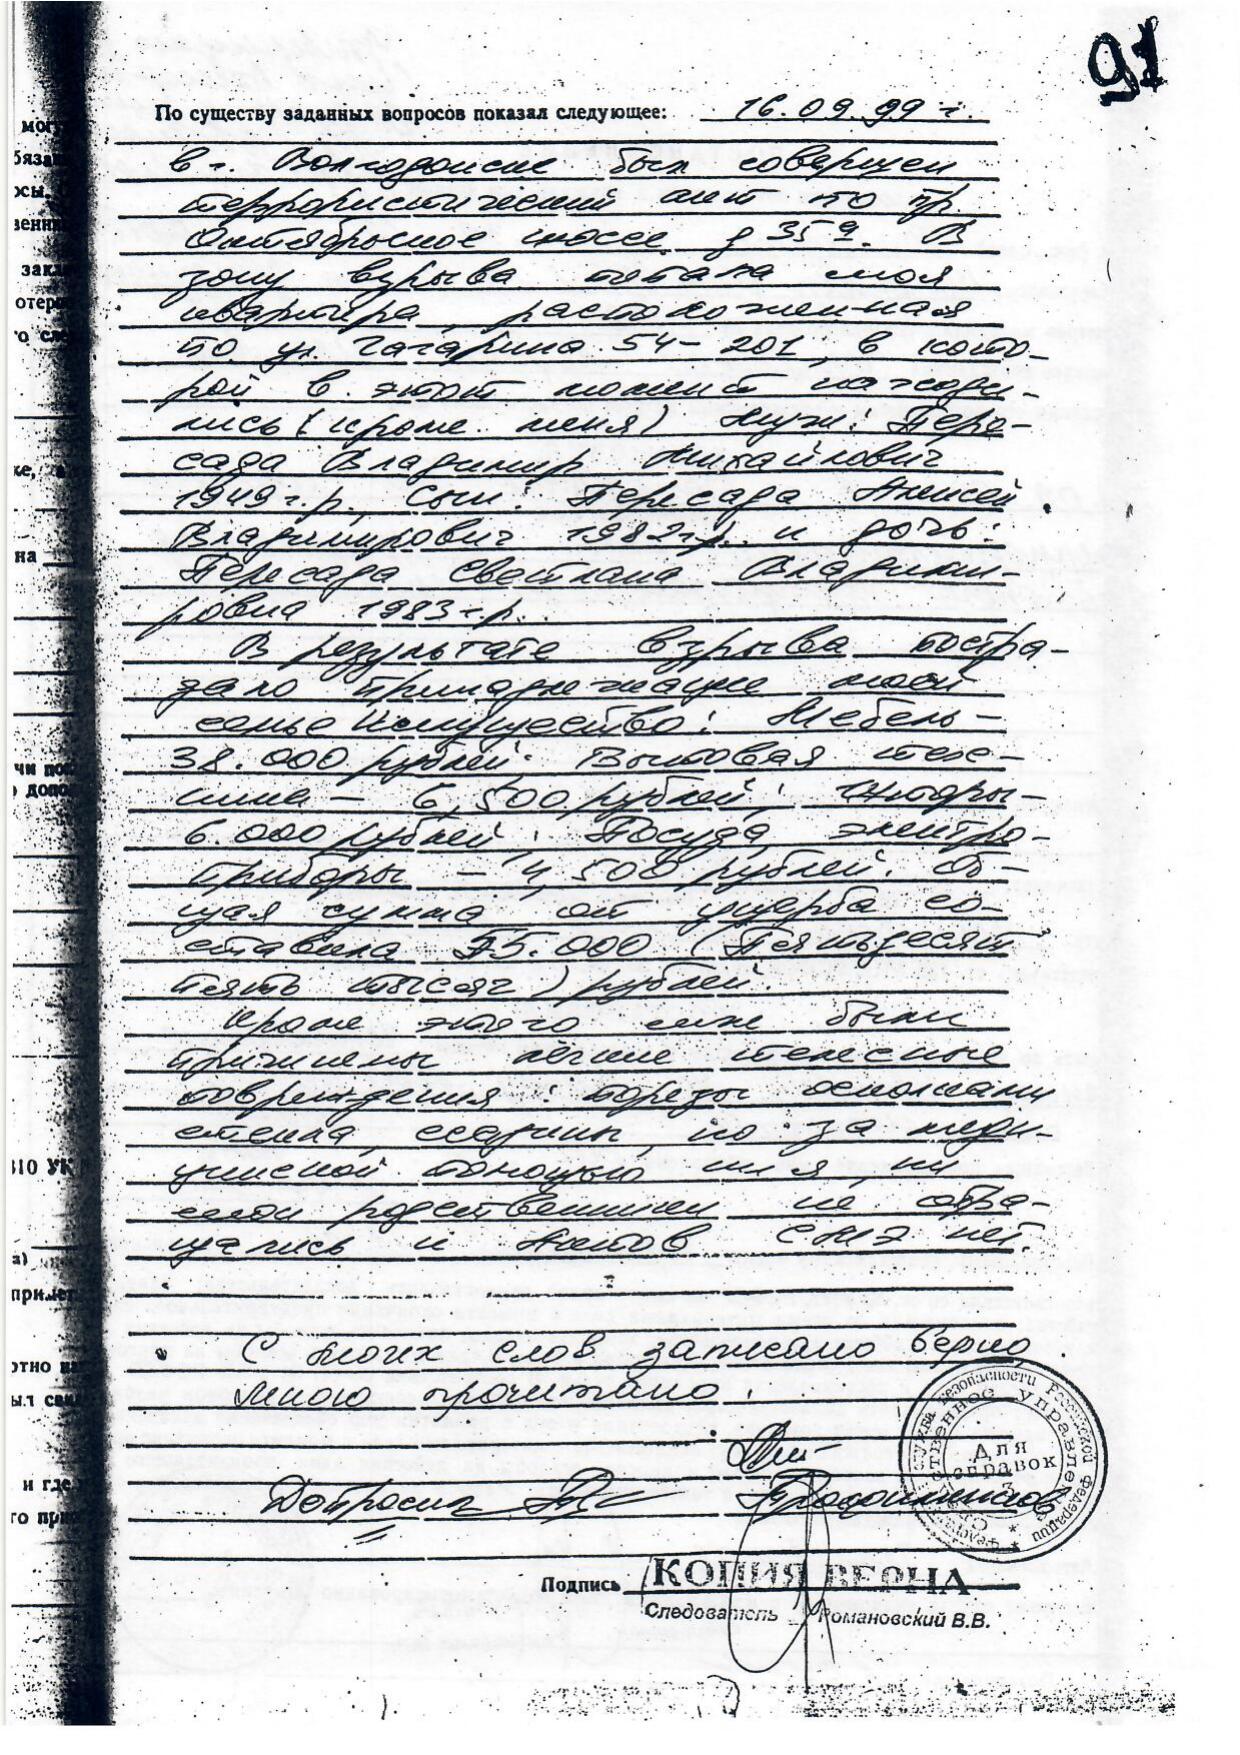 91
По существу заданных вопросов показал следующее: 16.09.99 г.
в г. Волгодонске был совершен
террористический акт по пр
Октябрьское шоссе д 35 а. В
зону взрыва попала моя
квартира, расположенная
по ул. Гагарина 54-201, в кото-
рой в этот момент находи-
лись (кроме меня) муж: Пере-
сада Владимир Михайлович
1949 г.р., сын: Пересада Алексей
Владимирович 1982 г.р. и дочь:
Пересада Светлана Владими-
ровна 1983 г.р.
В результате взрыва постра-
дало принадлежащее моей
семье имущество: Мебель -
38.000 рублей. Бытовая тех-
ника - 6,500 рублей;
6.000 рублей; Посуда, электро-
приборы - 4,500 рублей. Об-
щая сумма от ущерба со-
ставила 55.000 (Пятьдесят
пять тысяч) рублей.
Кроме этого мне были
причинены легкие телесные
повреждения: порезы осколками
стекла, ссадины, но за меди-
цинской помощью ни я, ни
мои родственники не обра-
щались и Актов СМЭ нет.
С моих слов записано верно,
мною прочитано.
Допросил
Подпись КОПИЯ ВЕРНА
Следователь Романовский В.В.
Для
справок